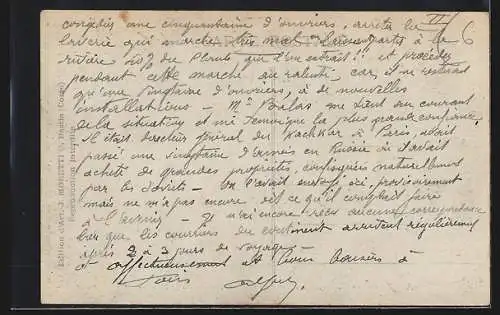 III
6
congédier une cinquantaine d'ouvriers, arrêter la
laverie qui marche très mal & laissait partir à la
rivière 10% du Plomb, que l'on extrait!! et procéder
pendant cette marche au ralenti, car il ne restait
qu'une vingtaine d'ouvriers, à de nouvelles
installations — Mr me tient au courant
de la situation et me témoigne la plus grande confiance.
Il était directeur général du à Paris, avait
passé une vingtaine d'années en Russie où il avait
acheté de grandes propriétés, confisquées naturellement
par les Soviets — On l'avait envoyé ici, provisoirement
mais ne m'a pas encore dit ce qu'il comptait faire
à l'avenir — Je n'ai encore reçu aucune correspondance
bien que les courriers du continent arrivent régulièrement
après 2 à 3 jours de voyage —
et affectueusement et bons baisers à
tous
Edition d'Art J. MORETTI, Bastia (Corse)
Reproduction interdite